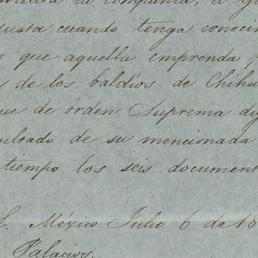 la compañia, el
justa cuando tenga conoci
que aquella emprenda
de los baldios de Chihu
que de orden Suprema di
ultado de su mencionada
tiempo los seis document
S. México Julio 6 de 18
Palacios.